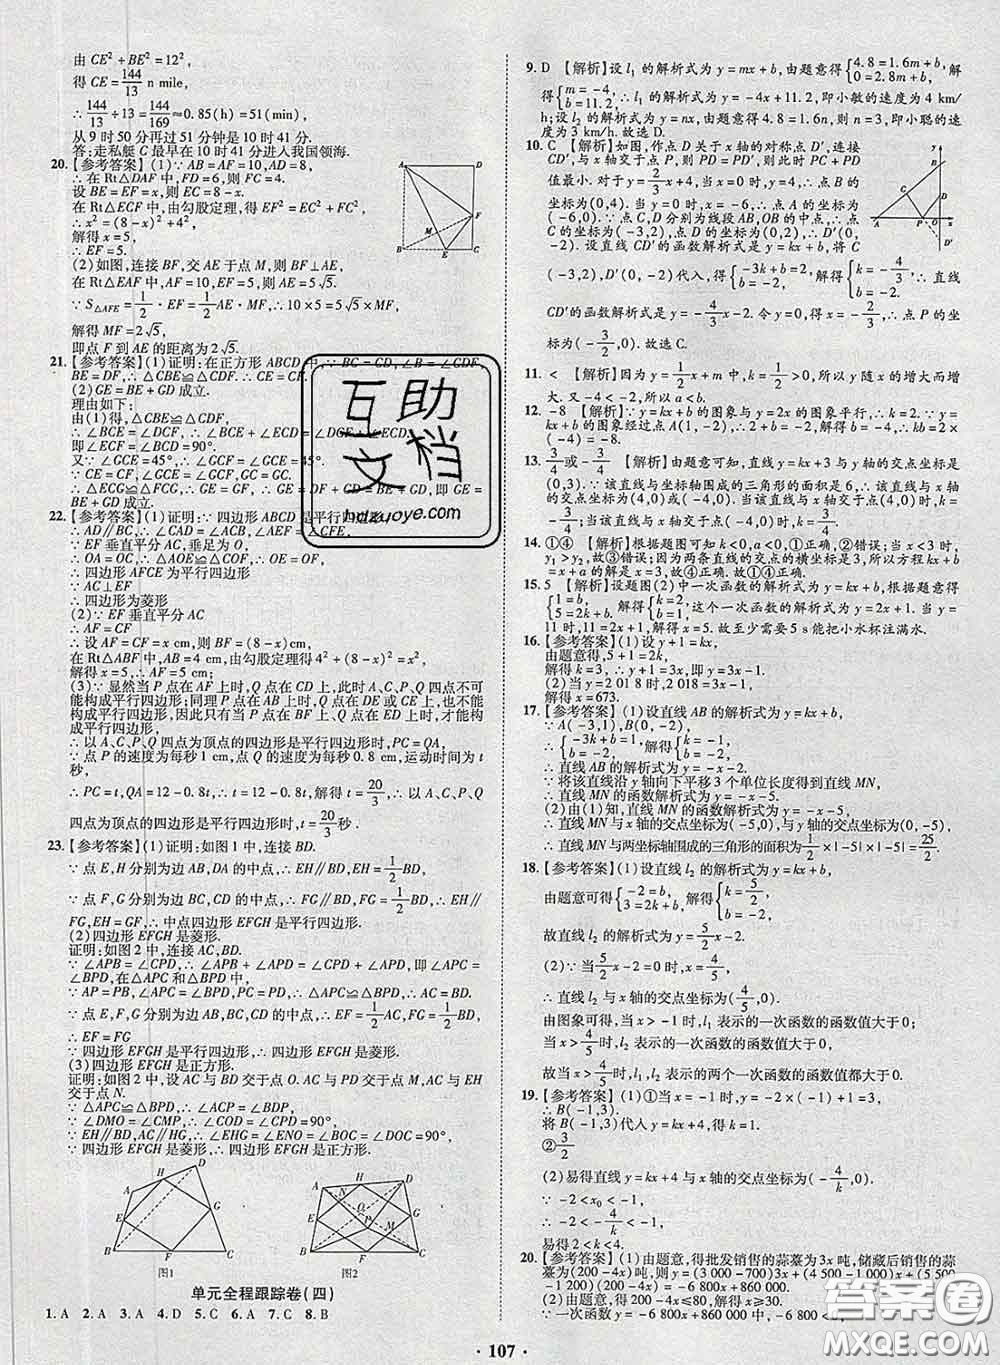 由 CE²+BE²=12²,
得 CE=144/13 n mile,
∴ 144/13÷13=144/169≈0.85(h)=51(min),
从 9 时 50 分再过 51 分钟是 10 时 41 分.
答:走私艇 C 最早在 10 时 41 分进入我国领海.
20.【参考答案】(1)∵AB=AF=10,AD=8,
∴在 Rt△DAF 中,FD=6,则 FC=4.
在 Rt△BEF 中,设 EF=x,则 EC=8-x.
在 Rt△ECF 中,由勾股定理,得 EF²=EC²+FC²,
∴x²=(8-x)²+4²,
解得 x=5,
∴EF=5.
(2)如图,连接 BF,交 AE 于点 M,则 BF⊥AE,
在 Rt△EAF 中,AF=10,EF=5,则 AE=5√5.
∵S△AFE=1/2·AF·EF=1/2AE·MF,∴10×5=5√5×MF,
解得 MF=2√5,
即点 F 到 AE 的距离为 2√5.
21.【参考答案】(1)证明:在正方形 ABCD 中,∵BC=CD,∠B=∠CDF,
BE=DF,∴△CBE≌△CDF.∴CE=CF.
(2)GE=BE+GD 成立.
理由如下:
由(1)得,△CBE≌△CDF,
∴∠BCE=∠DCF,∴∠BCE+∠ECD=∠DCF+∠ECD,
即∠ECF=∠BCD=90°.
又∵∠GCE=45°,∴∠GCF=∠GCE=45°.
∵CE=CF,∠GCE=∠GCF,GC=GC.
∴△ECG≌△FCG,∴GE=GF,∴GE=DF+GD=BE+GD,即 GE=
BE+GD 成立.
22.【参考答案】(1)证明:∵四边形 ABCD 是平行四边形,
∴AD∥BC,∴∠CAD=∠ACB,∠AEF=∠CFE,
∵EF 垂直平分 AC,垂足为 O,
∴OA=OC,∴△AOE≌△COF,∴OE=OF,
∴四边形 AFCE 为平行四边形
∵AC⊥EF
∴四边形为菱形
(2)∵EF 垂直平分 AC
∴AF=CF
∴设 AF=CF=x cm,则 BF=(8-x)cm,
在 Rt△ABF 中,AB=4 cm,由勾股定理得 4²+(8-x)²=x²,
解得 x=5,∴AF=5 cm;
(3)∵显然当 P 点在 AF 上时,Q 点在 CD 上,此时 A,C,P,Q 四点不可能
构成平行四边形;同理 P 点在 AB 上时,Q 点在 DE 或 CE 上,也不能
构成平行四边形.因此只有当 P 点在 BF 上,Q 点在 ED 上时,才能构成
平行四边形,
∴以 A、C、P、Q 四点为顶点的四边形是平行四边形时,PC=QA,
∵点 P 的速度为每秒 1 cm,点 Q 的速度为每秒 0.8 cm,运动时间为 t
秒,
∴PC=t,QA=12-0.8t,∴t=12-0.8t,解得:t=20/3,∴以 A、C、P、Q
四点为顶点的四边形是平行四边形时,t=20/3 秒.
23.【参考答案】(1)证明:如图 1 中,连接 BD.
∵点 E,H 分别为边 AB,DA 的中点,∴EH∥BD,EH=1/2BD,
∵点 F,G 分别为边 BC,CD 的中点,∴FG∥BD,FG=1/2BD,
∴EH∥FG,EH=GF,∴中点四边形 EFGH 是平行四边形.
(2)四边形 EFGH 是菱形.
证明:如图 2 中,连接 AC,BD.
∵∠APB=∠CPD,∴∠APB+∠APD=∠CPD+∠APD,即∠APC=
∠BPD,在△APC 和△BPD 中,
∵AP=PB,∠APC=∠BPD,PC=PD,∴△APC≌△BPD,∴AC=BD.
∵点 E,F,G 分别为边 AB,BC,CD 的中点,∴EF=1/2AC,FG=1/2BD,
∴EF=FG
∵四边形 EFGH 是平行四边形,∴四边形 EFGH 是菱形.
(3)四边形 EFGH 是正方形.
证明:如图 2 中,设 AC 与 BD 交于点 O.AC 与 PD 交于点 M,AC 与 EH
交于点 N.
∵△APC≌△BPD,∴∠ACP=∠BDP,
∵∠DMO=∠CMP,∴∠COD=∠CPD=90°,
∵EH∥BD,AC∥HG,∴∠EHG=∠ENO=∠BOC=∠DOC=90°,
∵四边形 EFGH 是菱形,∴四边形 EFGH 是正方形.
图1
图2
单元全程跟踪卷(四)
1. A 2. A 3. A 4. D 5. C 6. A 7. C 8. B
9. D 【解析】设 l₁ 的解析式为 y=mx+b,由题意得{4.8=1.6m+b, 0=2.8m+b,解
得{m=-4, b=11.2,∴l₁ 的解析式为 y=-4x+11.2,即小敏的速度为 4 km/
h;设 l₂ 的解析式为 y=nx,由题意得 4.8=1.6n,则 n=3,即小聪的速
度为 3 km/h.故选 D.
10. C 【解析】如图,作点 D 关于 x 轴的对称点 D′,连接
CD′,与 x 轴交于点 P,则 PD=PD′,则此时 PC+PD
值最小. 对于 y=2/3x+4,当 x=0 时,y=4,∴点 B 的
坐标为(0,4).当 y=0 时,x=-6,∴点 A 的坐标为
(-6,0).∵点 C,D 分别为线段 AB,OB 的中点,∴点
C 的坐标为(-3,2),点 D 的坐标为(0,2),∴D′(0,
-2). 设直线 CD′的函数解析式为 y=kx+b,将 C
(-3,2),D′(0,-2)代入,得{-3k+b=2, b=-2,解得{k=-4/3, b=-2,∴直线
CD′的函数解析式为 y=-4/3x-2.令 y=0,则 x=-3/2,∴点 P 的坐
标为(-3/2,0).故选 C.
11. < 【解析】因为 y=1/2x+m 中,k=1/2>0,所以 y 随 x 的增大而增
大.又 -4<-2,所以 a<b.
12. -8 【解析】∵y=kx+b 的图象与 y=2x 的图象平行,∴k=2.∵y=
kx+b 的图象经过点 A(1,-2),∴2+b=-2,解得 b=-4,∴kb=
-8.
13. 3/4或-3/4 【解析】由题意可知,直线 y=kx+3 与 y 轴的交点坐标是
(0,3).∵该直线与坐标轴围成的三角形的面积是 6,∴该直线与 x 轴
的交点坐标为(4,0)或(-4,0).当该直线与 x 轴交于点(4,0)时,k=
-3/4;当该直线与 x 轴交于点(-4,0)时,k=3/4.
14. ①④ 【解析】根据题图可知 k<0,a<0,①正确,②错误;当 x<3 时,
y₁>y₂,故③错误;因为两条直线的交点的横坐标是 3,所以方程 kx+b
=x+a 的解是 x=3,故④正确.故选①④.
15. 5 【解析】设题图(2)中一次函数的解析式为 y=kx+b,根据题意得
{1=b, 5=2k+b. 解得{k=2, b=1,这个一次函数的解析式为 y=2x+1. 当 y=
11 时,2x+1=11,解得 x=5.故至少需要 5 s 能把小水标注满水.
16.【参考答案】(1)设 y+1=kx,
由题意得,5+1=2k,
解得 k=3.∴y+1=3x,即 y=3x-1.
(2)当 y=2 018 时,2 018=3x-1,
解得 x=673.
17.【参考答案】(1)设直线 AB 的解析式为 y=kx+b,
∵A(-3,1),B(0,-2),
∴{-3k+b=1, b=-2,解得{k=-1, b=-2,
∴直线 AB 的解析式为 y=-x-2.
∵将该直线沿 y 轴向下平移 3 个单位长度得到直线 MN,
∴直线 MN 的函数解析式为 y=-x-5.
(2)由(1)知,直线 MN 的函数解析式为 y=-x-5,
∴直线 MN 与 x 轴的交点坐标为(-5,0),与 y 轴的交点坐标为(0,-5),
∴直线 MN 与两坐标轴围成的三角形的面积为1/2×|-5|×|-5|=25/2.
18.【参考答案】(1)设直线 l₂ 的解析式为 y=kx+b,
由题意可得{-2=b, 3=2k+b,解得{k=5/2, b=-2.
故直线 l₂ 的解析式为 y=5/2x-2.
(2)∵当5/2x-2=0 时,x=4/5,
∴直线 l₂ 与 x 轴的交点坐标为(4/5,0).
由图象可得,当 x>-1 时,l₁ 表示的一次函数的函数值大于 0;
当 x>4/5时,l₂ 表示的一次函数的函数值大于 0,
故当 x>4/5时,l₁,l₂ 表示的两个一次函数的函数值都大于 0.
19.【参考答案】(1)①当 x=-1 时,y=-2×(-1)+1=3,
∴B(-1,3).
将 B(-1,3)代入 y=kx+4,得 k=1.
②3/2
(2)易得直线 y=kx+4 与 x 轴的交点坐标为(-4/k,0).
∵-2<x₀<-1,
∴-2<-4/k<-1,
易得 2<k<4.
20.【参考答案】(1)由题意,得批发销售的蒜薹为 3x 吨,储藏后销售的蒜
薹为(200-4x)吨,则 y=(3 000-700)·3x+(4 500-1 000)x+(5 500
-1 200)(200-4x)=-6 800x+860 000.
(2)由题意得 200-4x≤80,解得 x≥30.
∵一次函数 y=-6 800x+860 000 中,-6 800<0,
107
互助文档
hdzuoye.com
答案圈
MXQE.COM